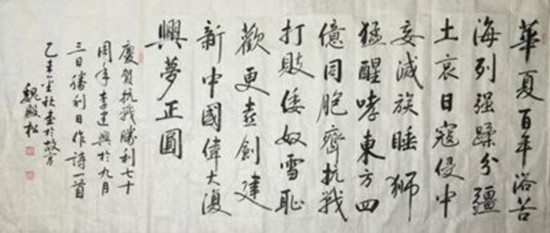 華夏百年浴苦
海列强蹂分疆
土哀日寇侵中
妄滅族睡狮
猛醒哮東方四
億同胞齊抗戰
打敗倭奴雪恥
歡更喜創建
新中國偉大復
興夢正圓
慶賀抗戰勝利七十
周年李建興於九月
三日勝利日作詩一首
乙未金秋書於故宫
魏殿松